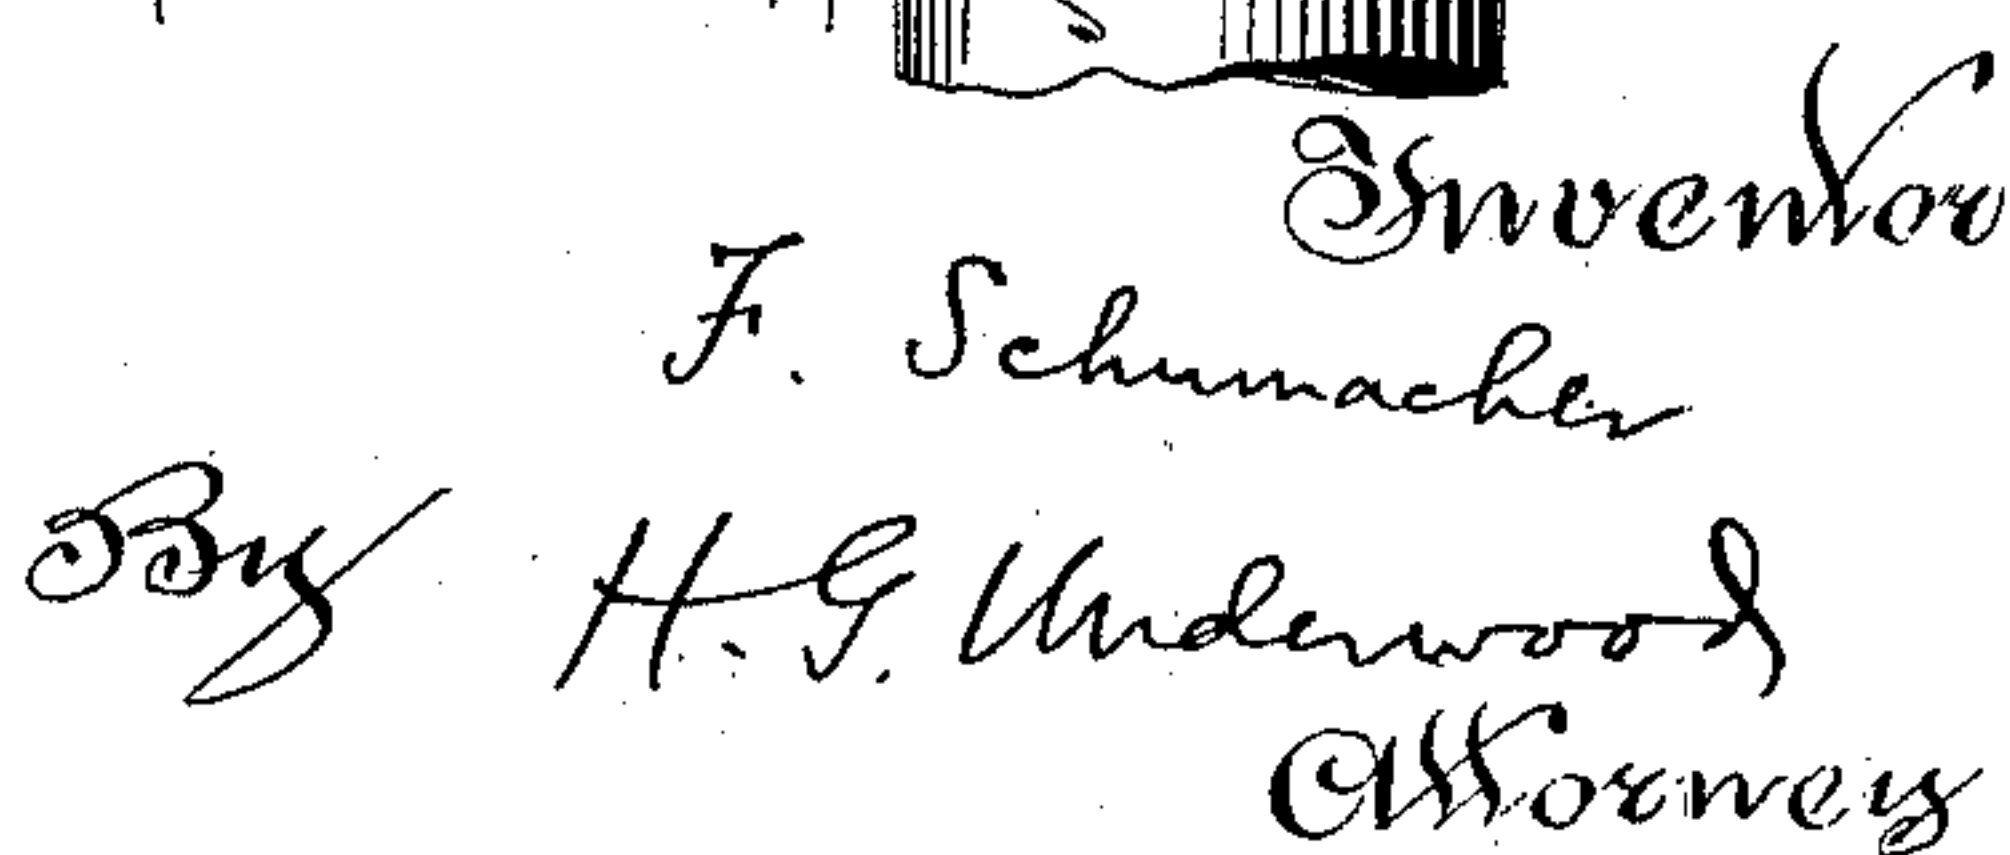 Inventor
F. Schumacher
By H. G. Underwood
Attorney